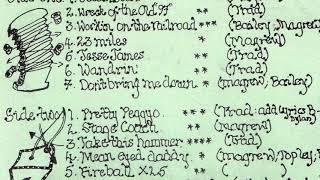 2. Wreck of the Old 97 * (Trad)
3. Workin on the Railroad *** (Bailey, Magrew)
4. 23 miles * (Magrew)
5. Jesse James ** (Trad)
6. Wandrin' * (Trad)
7. Don't bring me down * (Magrew, Bailey)
Side two 1. Pretty Peggyo ** (Trad: add lyrics B. Dylan)
2. Stage Coach ** (Magrew)
3 Take this hammer **** (Trad)
4. Mean eyed daddy * (Magrew, Topley, B
5. Fireball XL5 **